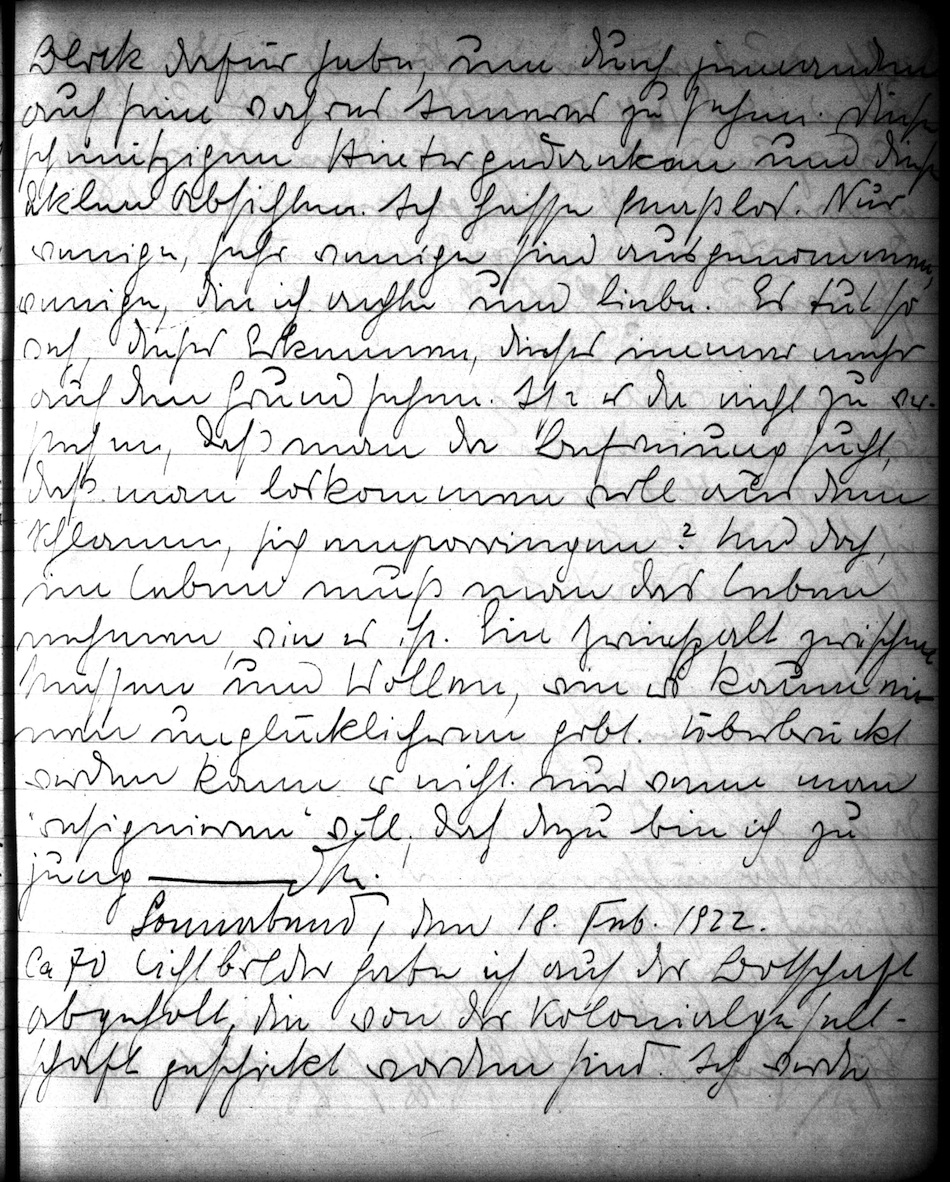 Blick dafür habe, um durch jemanden
auf sein wahres Inneres zu sehen. Diese
schmutzigen Hintergedanken und diese
eklen Absichten. Ich hasse grenzlos. Nur
wenige, sehr wenige sind ausgenommen,
wenige, die ich achte und liebe. Es tut so
weh, dieses Erkennen, dieses immer mehr
auf den Grund sehen. Ist es da nicht zu ver-
stehen, daß man da Befreiung sucht,
daß man loskommen will aus dem
Schlamm, sich emporringen? Und doch,
im Leben muß man das Leben
nehmen, wie es ist. Ein Zwiespalt zwischen
Müssen und Wollen, wie es kaum ei-
nen unglücklicheren gibt. Überbrückt
werden kann er nicht nur wenn man
"resignieren" will, doch dazu bin ich zu
jung
Sonnabend, den 18. Feb. 1922.
Ca 70 Lichtbilder habe ich auf der Botschaft
abgeholt, die von der Kolonialgesell-
schaft geschickt worden sind. Ich werde